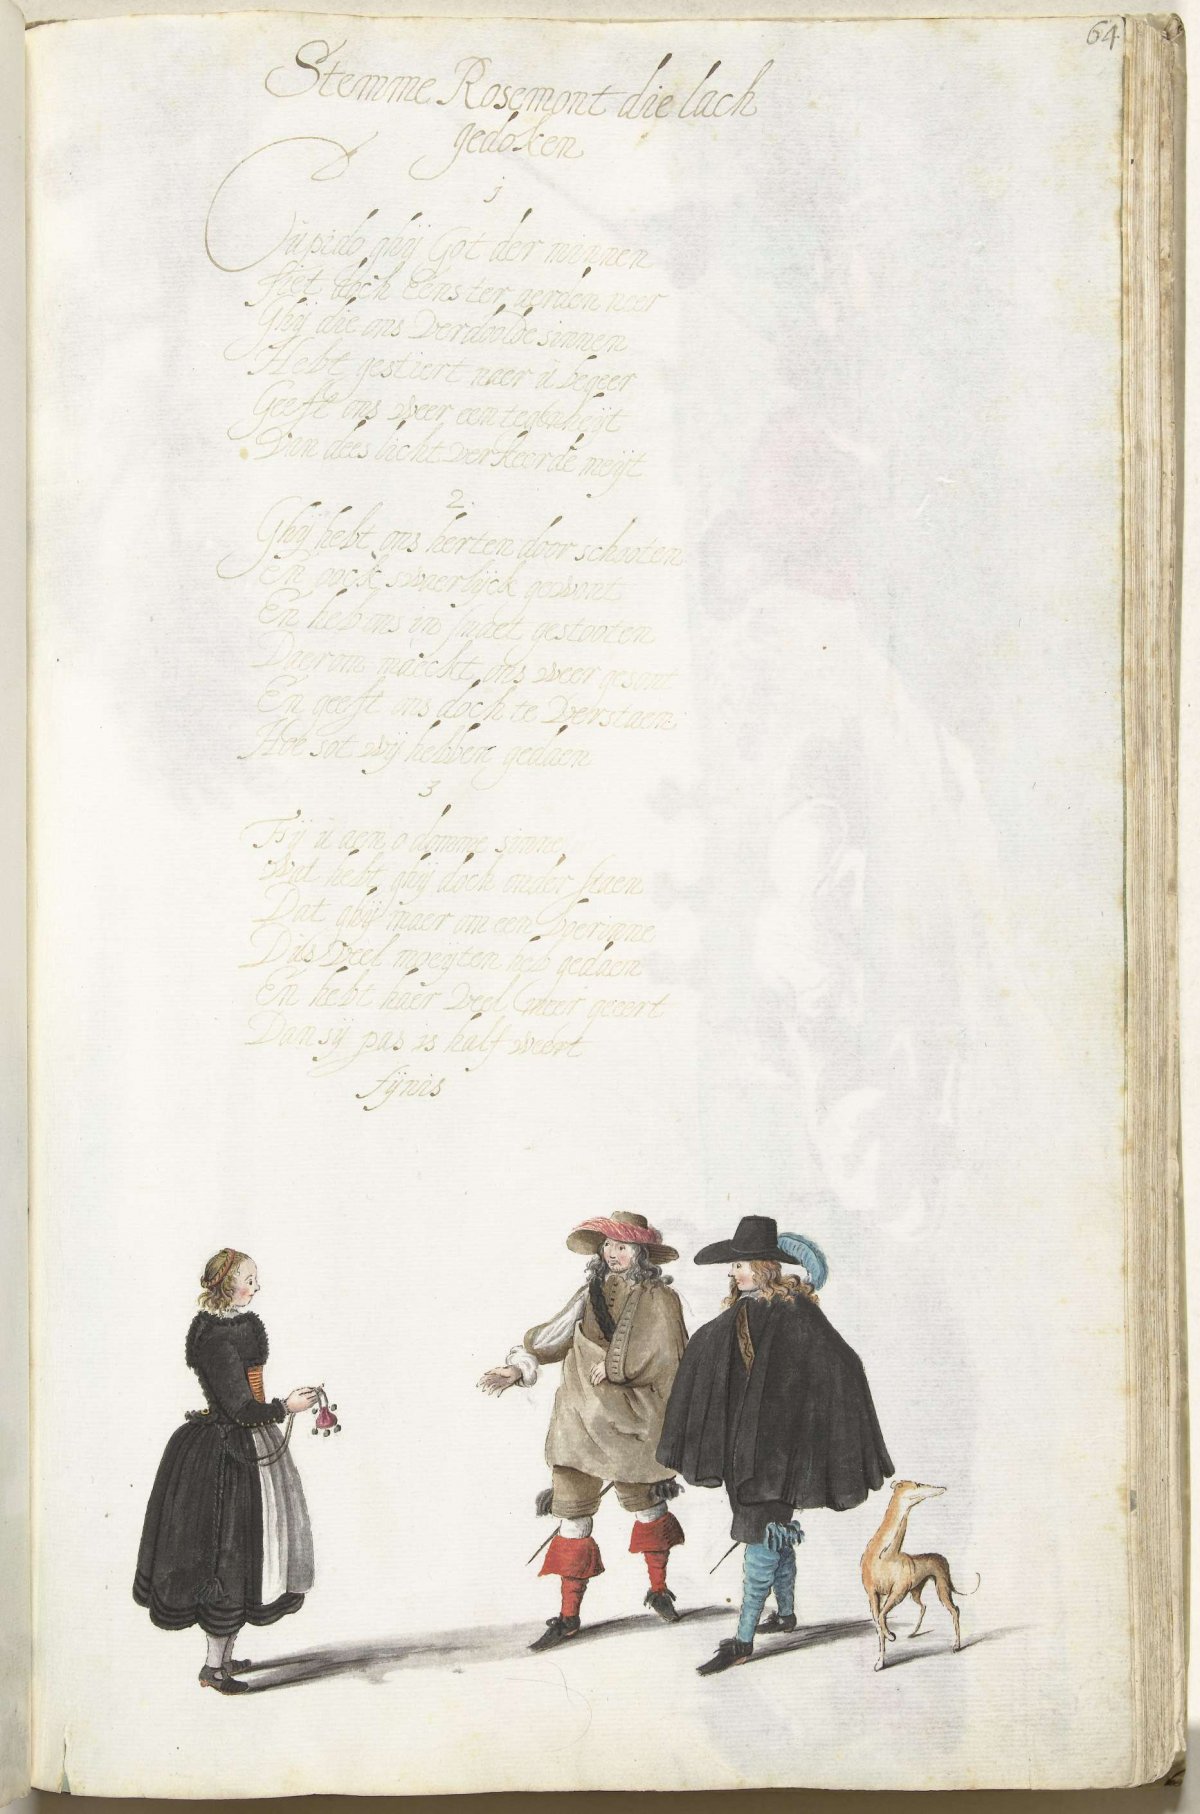 64
Stemme Rosemont die lach
gedoken
1
Cupido ghij Got der minnen
siet doch Eens ter aerden neer
Ghij die ons Verdoolde sinnen
Hebt gestiert naer ú begeer
Geeft ons weer een tegenheijt
Van dees licht Verkeerde meijt
2
Ghij hebt ons herten door schooten
En oock swaerlijck gewont
En heb ons in smaet gestooten
Daerom maeckt ons weer gesont
En geeft ons doch te Verstaen
Hoe sot wij hebben gedaen
3
Fij ú aen o domme sinne
Wat hebt ghij doch onder staen
Dat ghij maer om een boerinne
Dús Veel moeijten heb gedaen
En hebt haer Veel meer geeert
Dan sij pas is half weert
fijnis